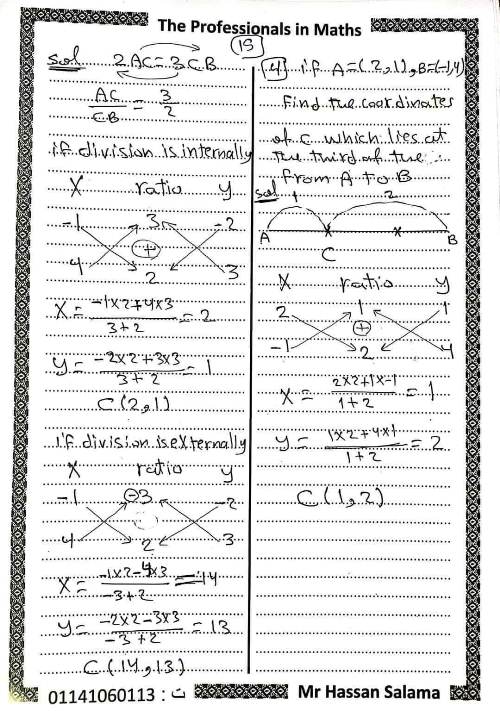 The Professionals in Maths
15
sol 2AC=3CB
AC/CB = 3/2
if division is internally
X ratio y
-1 3 -2
+
4 2 3
X = (-1×2+4×3)/(3+2) = 2
y = (-2×2+3×3)/(3+2) = 1
C(2,1)
if division is externally
X ratio y
-1 -3 -2
4 2 3
X = (-1×2-4×3)/(-3+2) = 14
y = (-2×2-3×3)/(-3+2) = 13
C(14,13)
4 if A=(2,1), B=(-1,4)
Find the coordinates
of C which lies at
the third of the
from A to B
sol
1 2
A B
C
X ratio y
2 1 1
+
-1 2 4
X = (2×2+1×-1)/(1+2) = 1
y = (1×2+4×1)/(1+2) = 2
C(1,2)
01141060113 : ت
Mr Hassan Salama